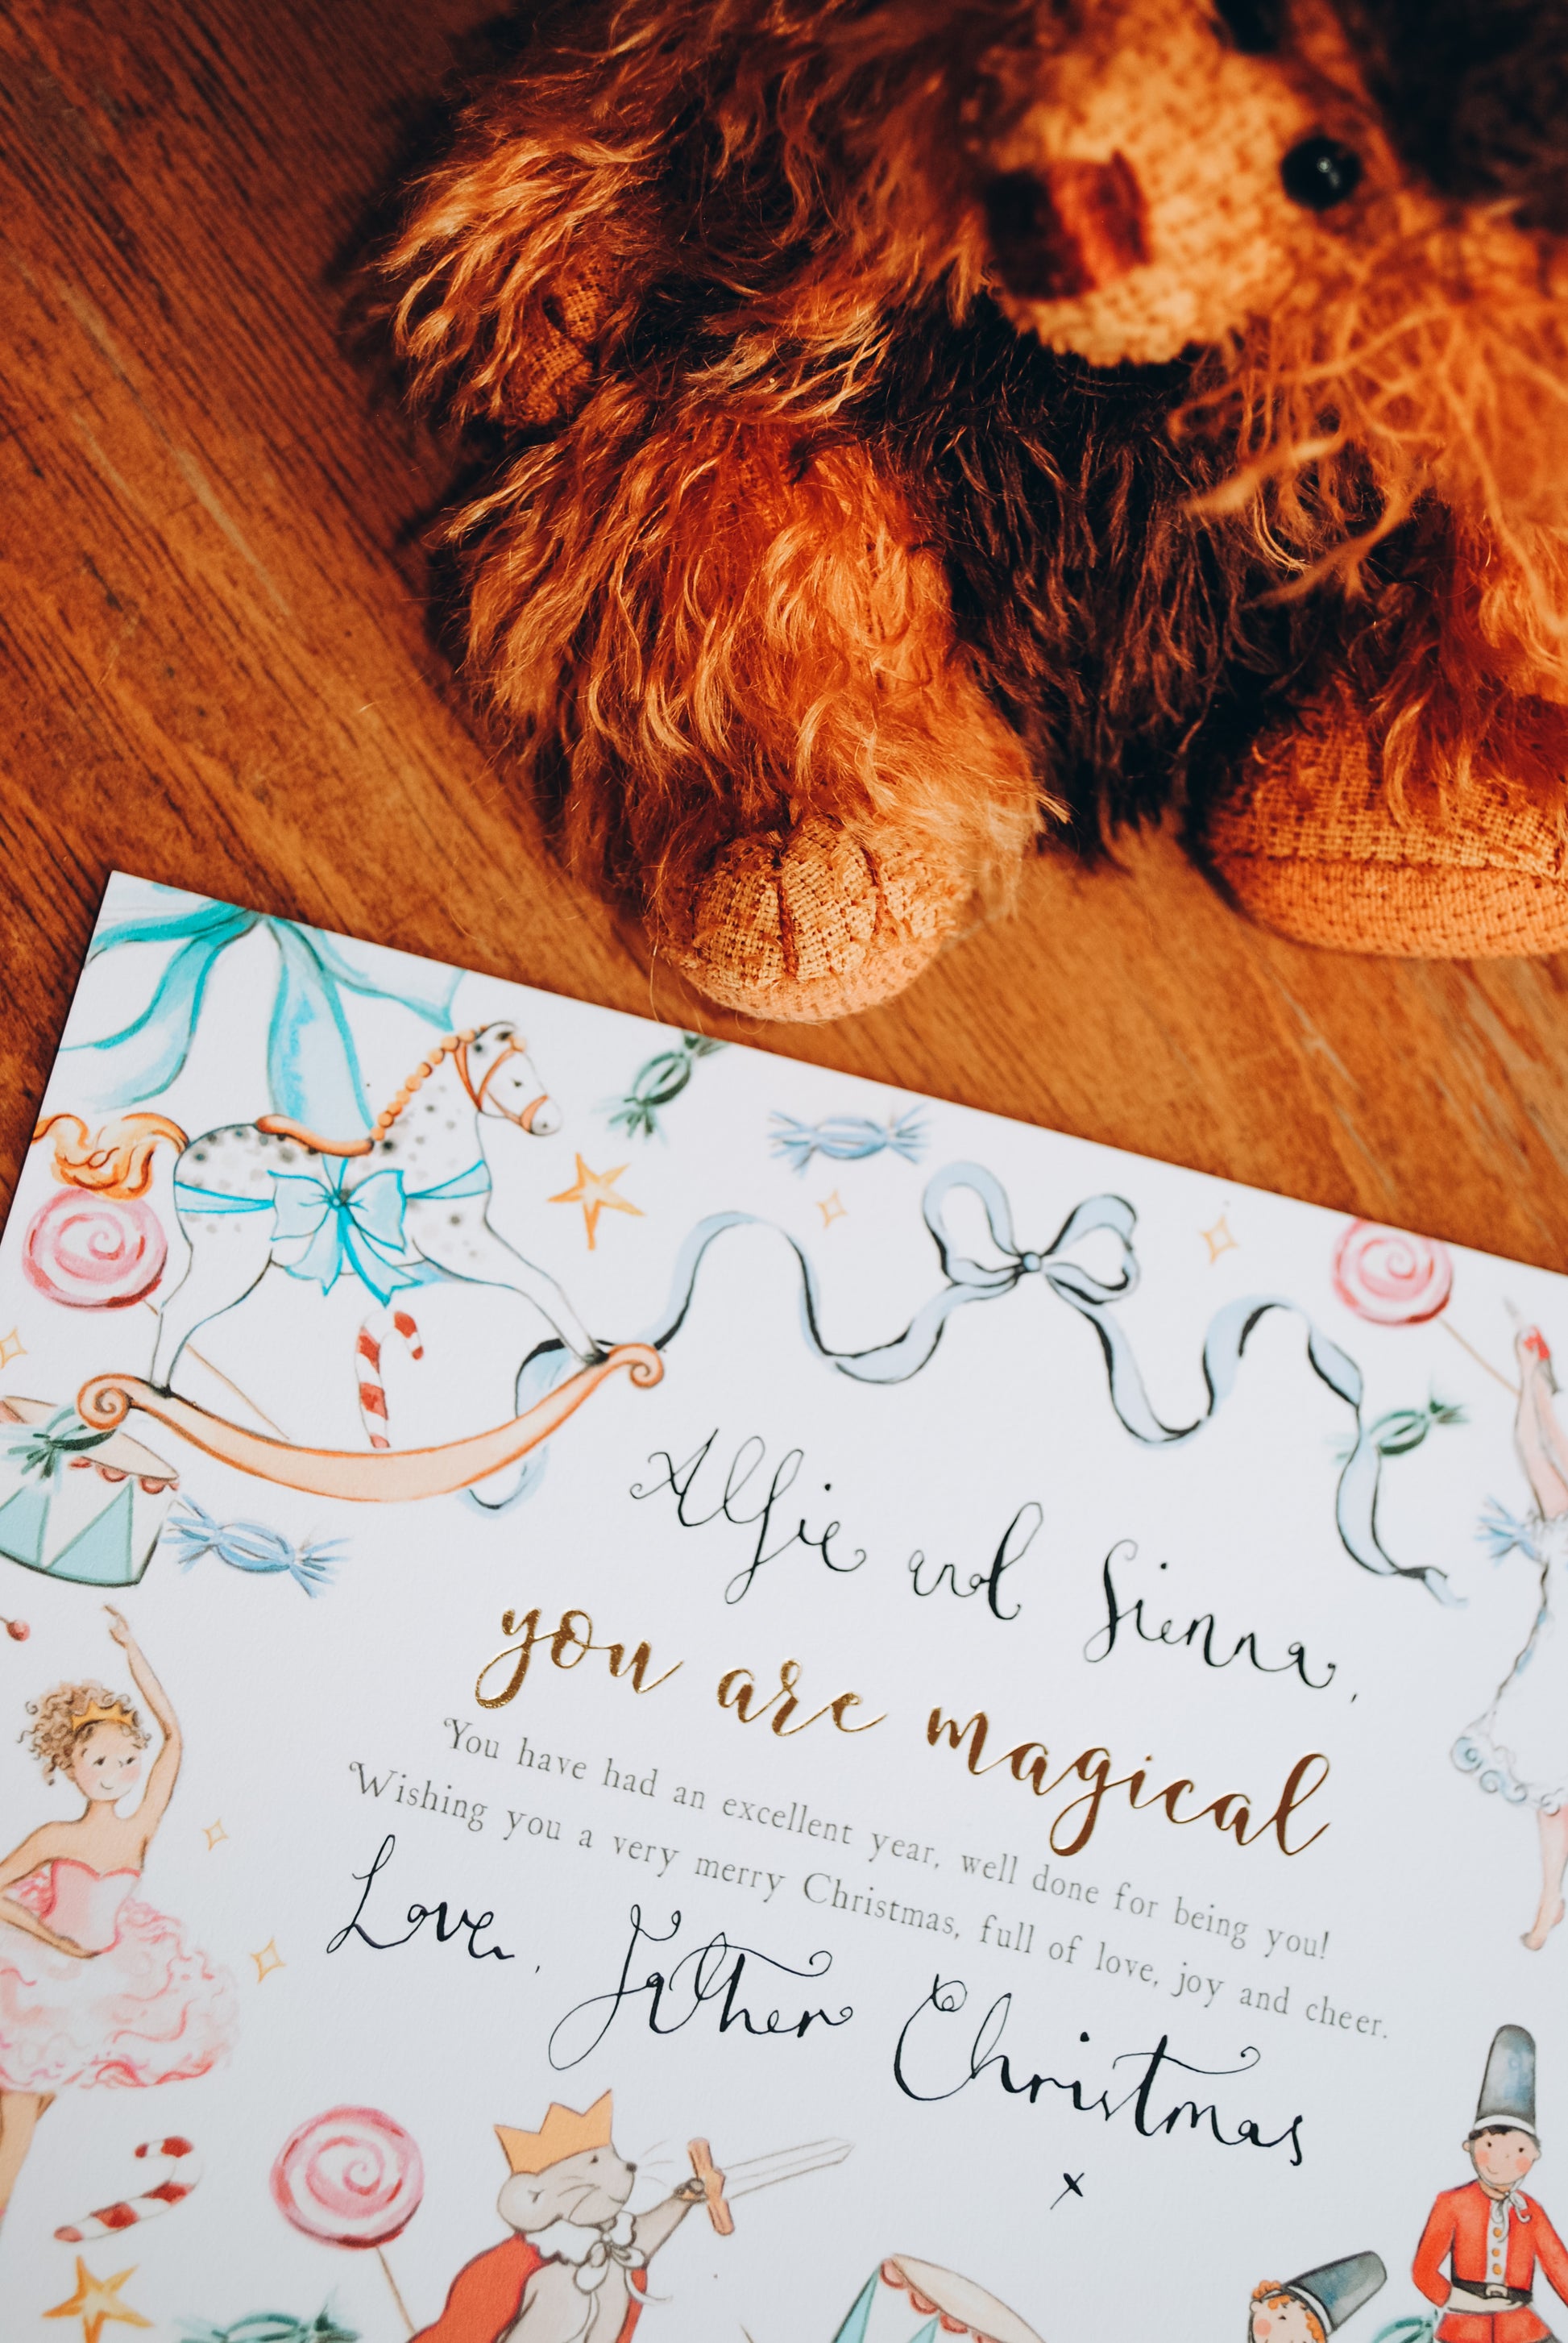 Alfie and Sienna,
you are magical
You have had an excellent year, well done for being you!
Wishing you a very merry Christmas, full of love, joy and cheer.
Love, Father Christmas
x